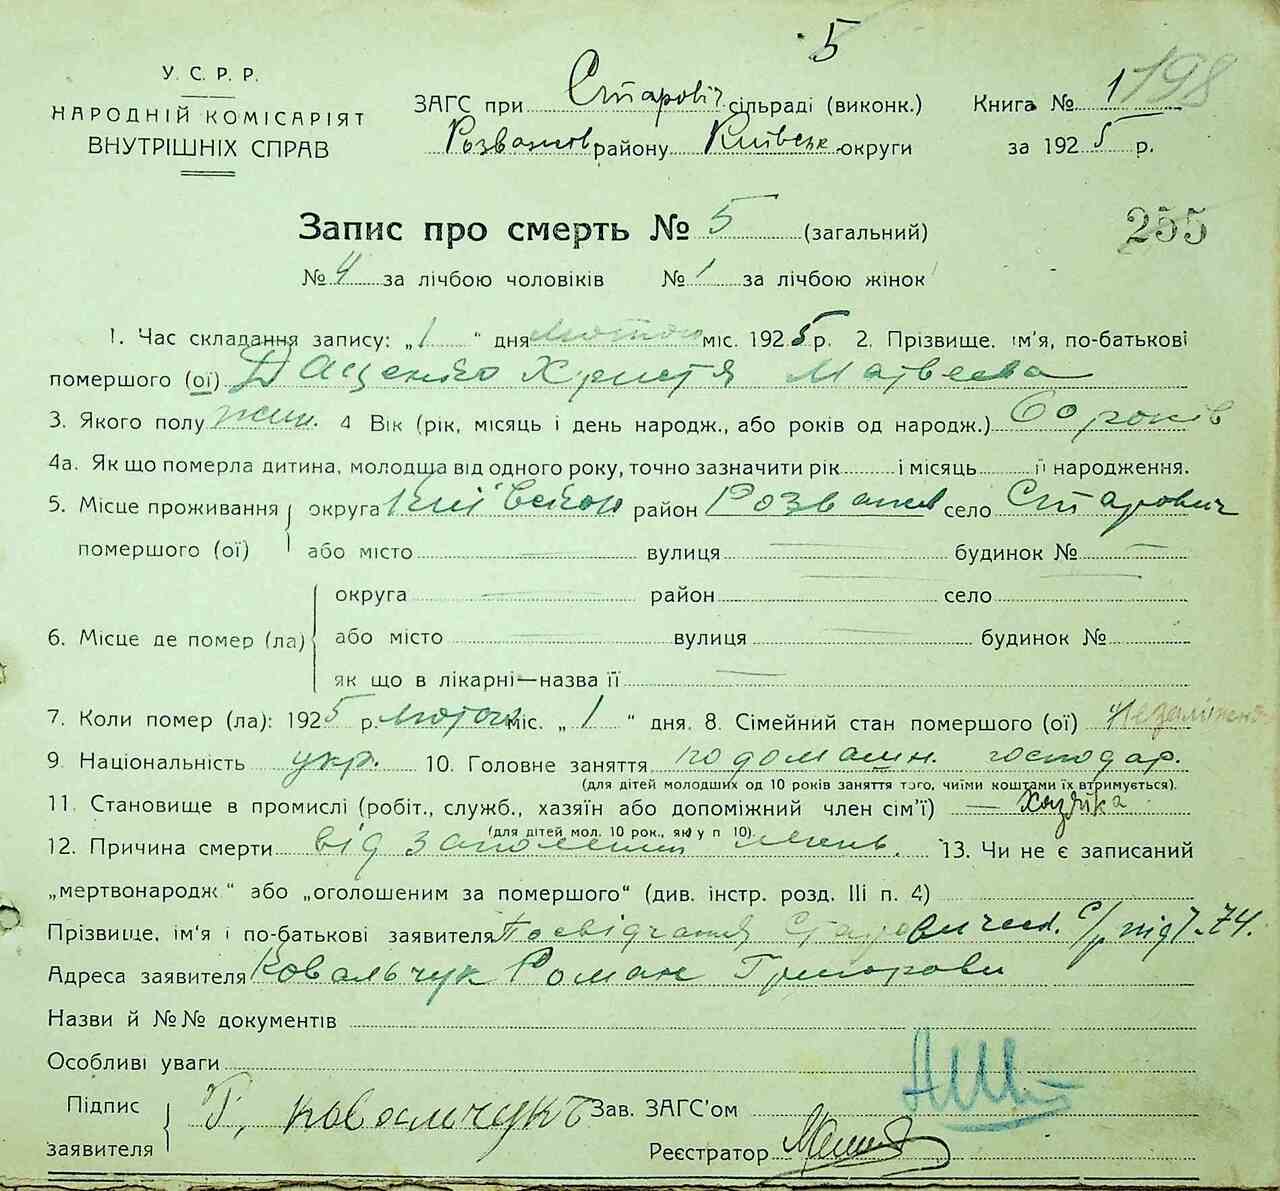 5
У. С. Р. Р.
НАРОДНІЙ КОМІСАРІЯТ
ВНУТРІШНІХ СПРАВ
ЗАГС при Старовіч сільраді (виконк.)
Розважов району Київськ округи
Книга № 1 198
за 1925 р.
Запис про смерть № 5 (загальний)
255
№ 4 за лічбою чоловіків № 1 за лічбою жінок
1. Час складання запису: „1" дня лютого міс. 1925 р. 2. Прізвище, ім'я, по-батькові
помершого (ої) Даценко Христя Матвеева
3. Якого полу жин. 4 Вік (рік, місяць і день народж., або років од народж.) 60 років
4а. Як що померла дитина, молодща від одного року, точно зазначити рік і місяць її народження.
5. Місце проживання округа Київськой район Розважів село Старович
помершого (ої) або місто вулиця будинок №
округа район село
6. Місце де помер (ла) або місто вулиця будинок №
як що в лікарні—назва її
7. Коли помер (ла): 1925 р. лютого міс. „1" дня. 8. Сімейний стан помершого (ої)
9 Національність укр. 10. Головне заняття по домашн. господар.
(для дітей молодших од 10 років заняття того, чиїми коштами їх втримується).
11. Становище в промислі (робіт., служб., хазяїн або допоміжний член сім'ї) — Хазяйка
(для дітей мол. 10 рок., як у п 10).
12. Причина смерти від запоління 13. Чи не є записаний
„мертвонародж" або „оголошеним за помершого" (див. інстр. розд. III п. 4)
Прізвище, ім'я і по-батькові заявителя Посвідчання Старовичск. с/р під 7.74.
Адреса заявителя Ковальчук Роман Григорови
Назви й №№ документів
Особливі уваги
Підпис Г, ковальчукъ Зав. ЗАГС'ом
заявителя Реєстратор